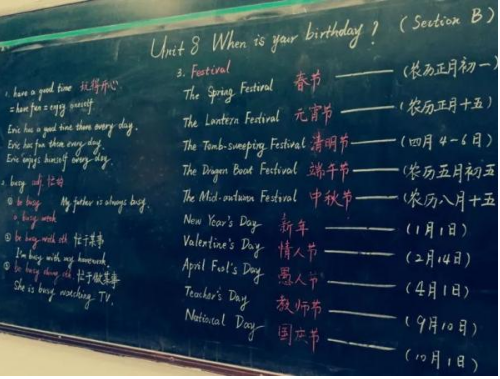 Unit 8 When is your birthday? (Section B)
1. have a good time 玩得开心
= have fun = enjoy oneself
Eric has a good time there every day.
Eric has fun there every day.
Eric enjoys himself every day.
2. busy adj. 忙的
① be busy My father is always busy.
a busy week
② be busy with sth. 忙于某事
I'm busy with my homework.
③ be busy doing sth. 忙于做某事
She is busy watching TV.
3. Festival
The Spring Festival 春节 —— (农历正月初一)
The Lantern Festival 元宵节 —— (农历正月十五)
The Tomb-sweeping Festival 清明节 —— (四月 4-6日)
The Dragon Boat Festival 端午节 —— (农历五月初五
The Mid-autumn Festival 中秋节 —— (农历八月十五
New Year's Day 新年 —— (1月1日)
Valentine's Day 情人节 —— (2月14日)
April Fool's Day 愚人节 —— (4月1日)
Teacher's Day 教师节 —— (9月10日)
National Day 国庆节 —— (10月1日)